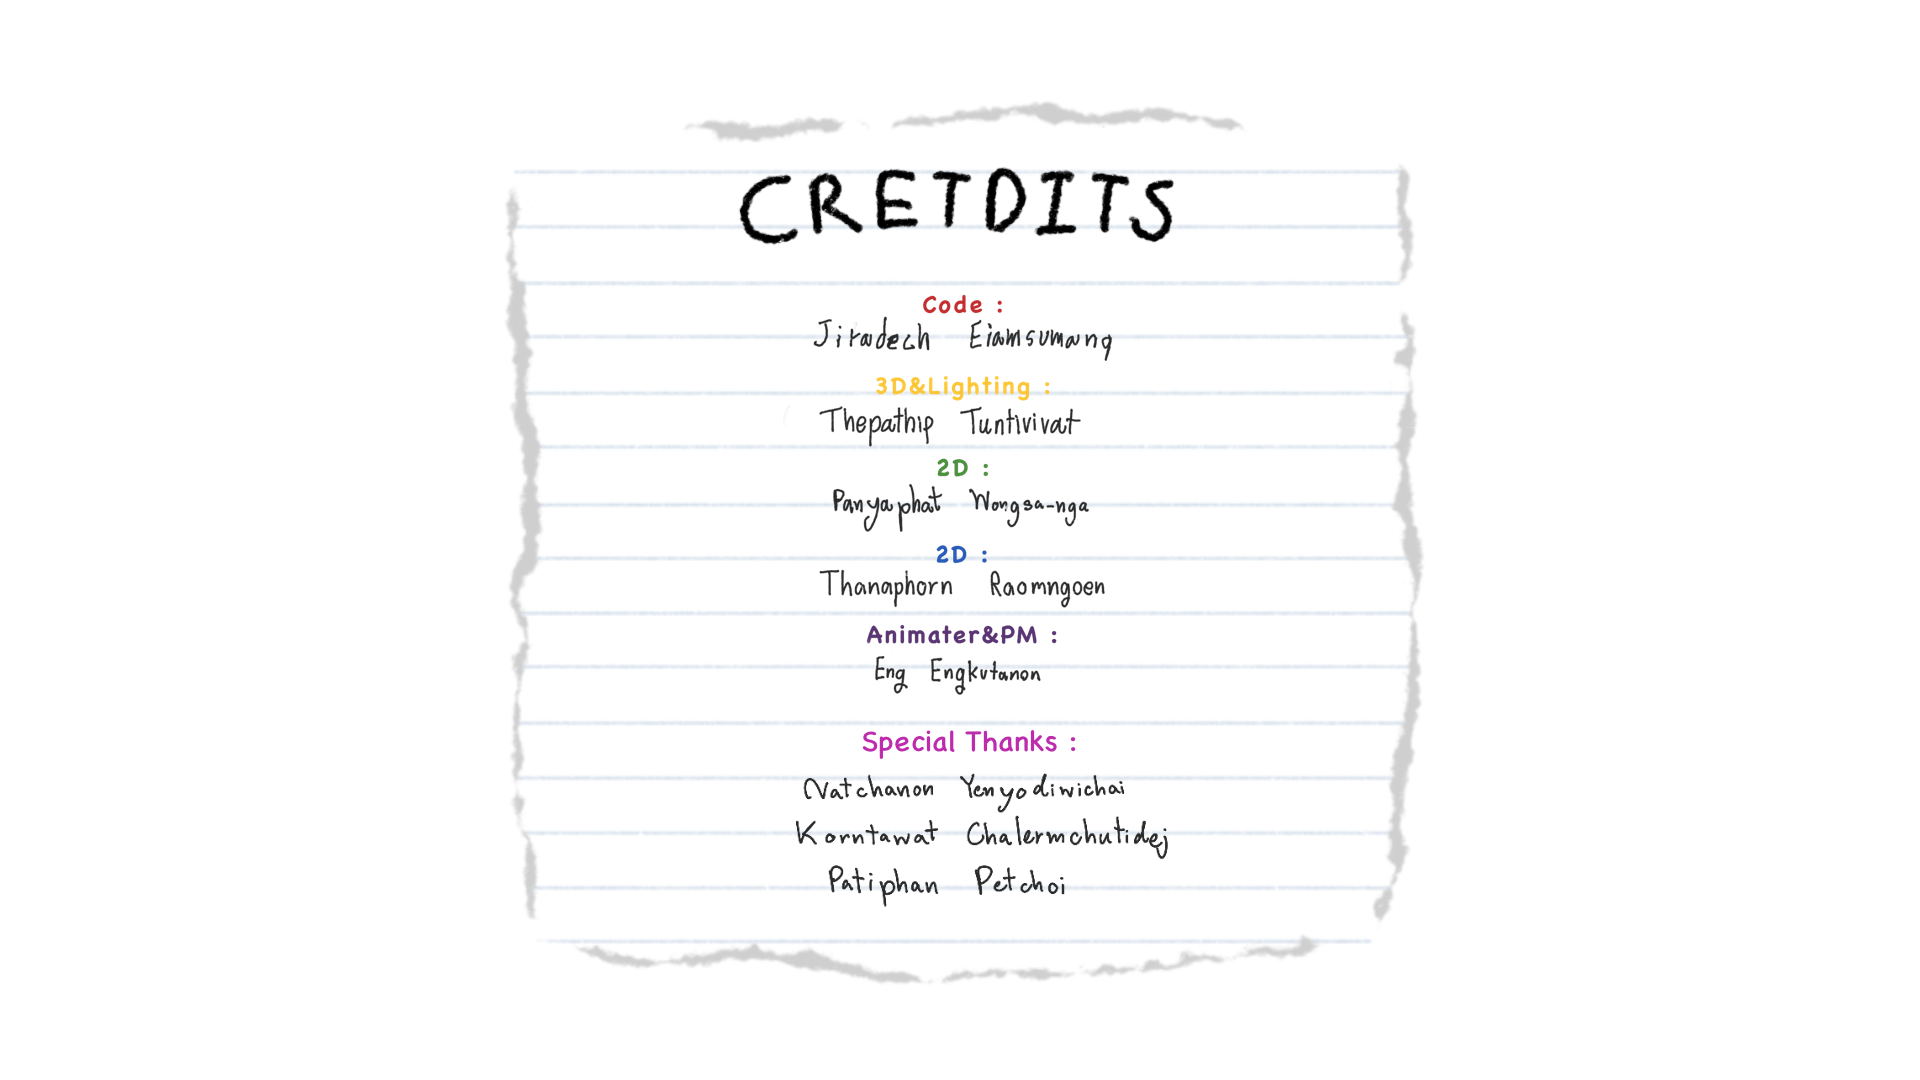 CRETDITS
Code :
Jiradech Eiamsumang
3D&Lighting :
Thepathip Tuntivivat
2D :
Panyaphat Wongsa-nga
2D :
Thanaphorn Raomngoen
Animater&PM :
Eng Engkutanon
Special Thanks :
Natchanon Yenyodiwichai
Korntawat Chalermchutidej
Patiphan Petchoi